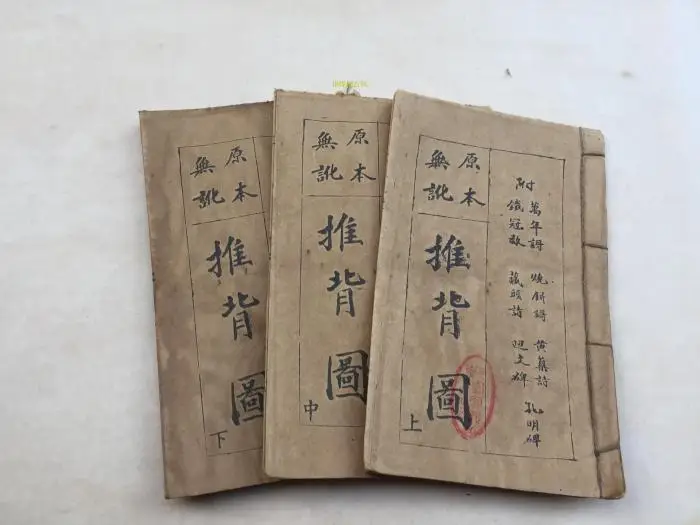 附
萬年謌 燒餅謌 黃蘗詩
鐵冠 藏頭詩 碑
孔明碑
原本
無訛
推背圖
上
原本
無訛
推背圖
中
原本
無訛
推背圖
下